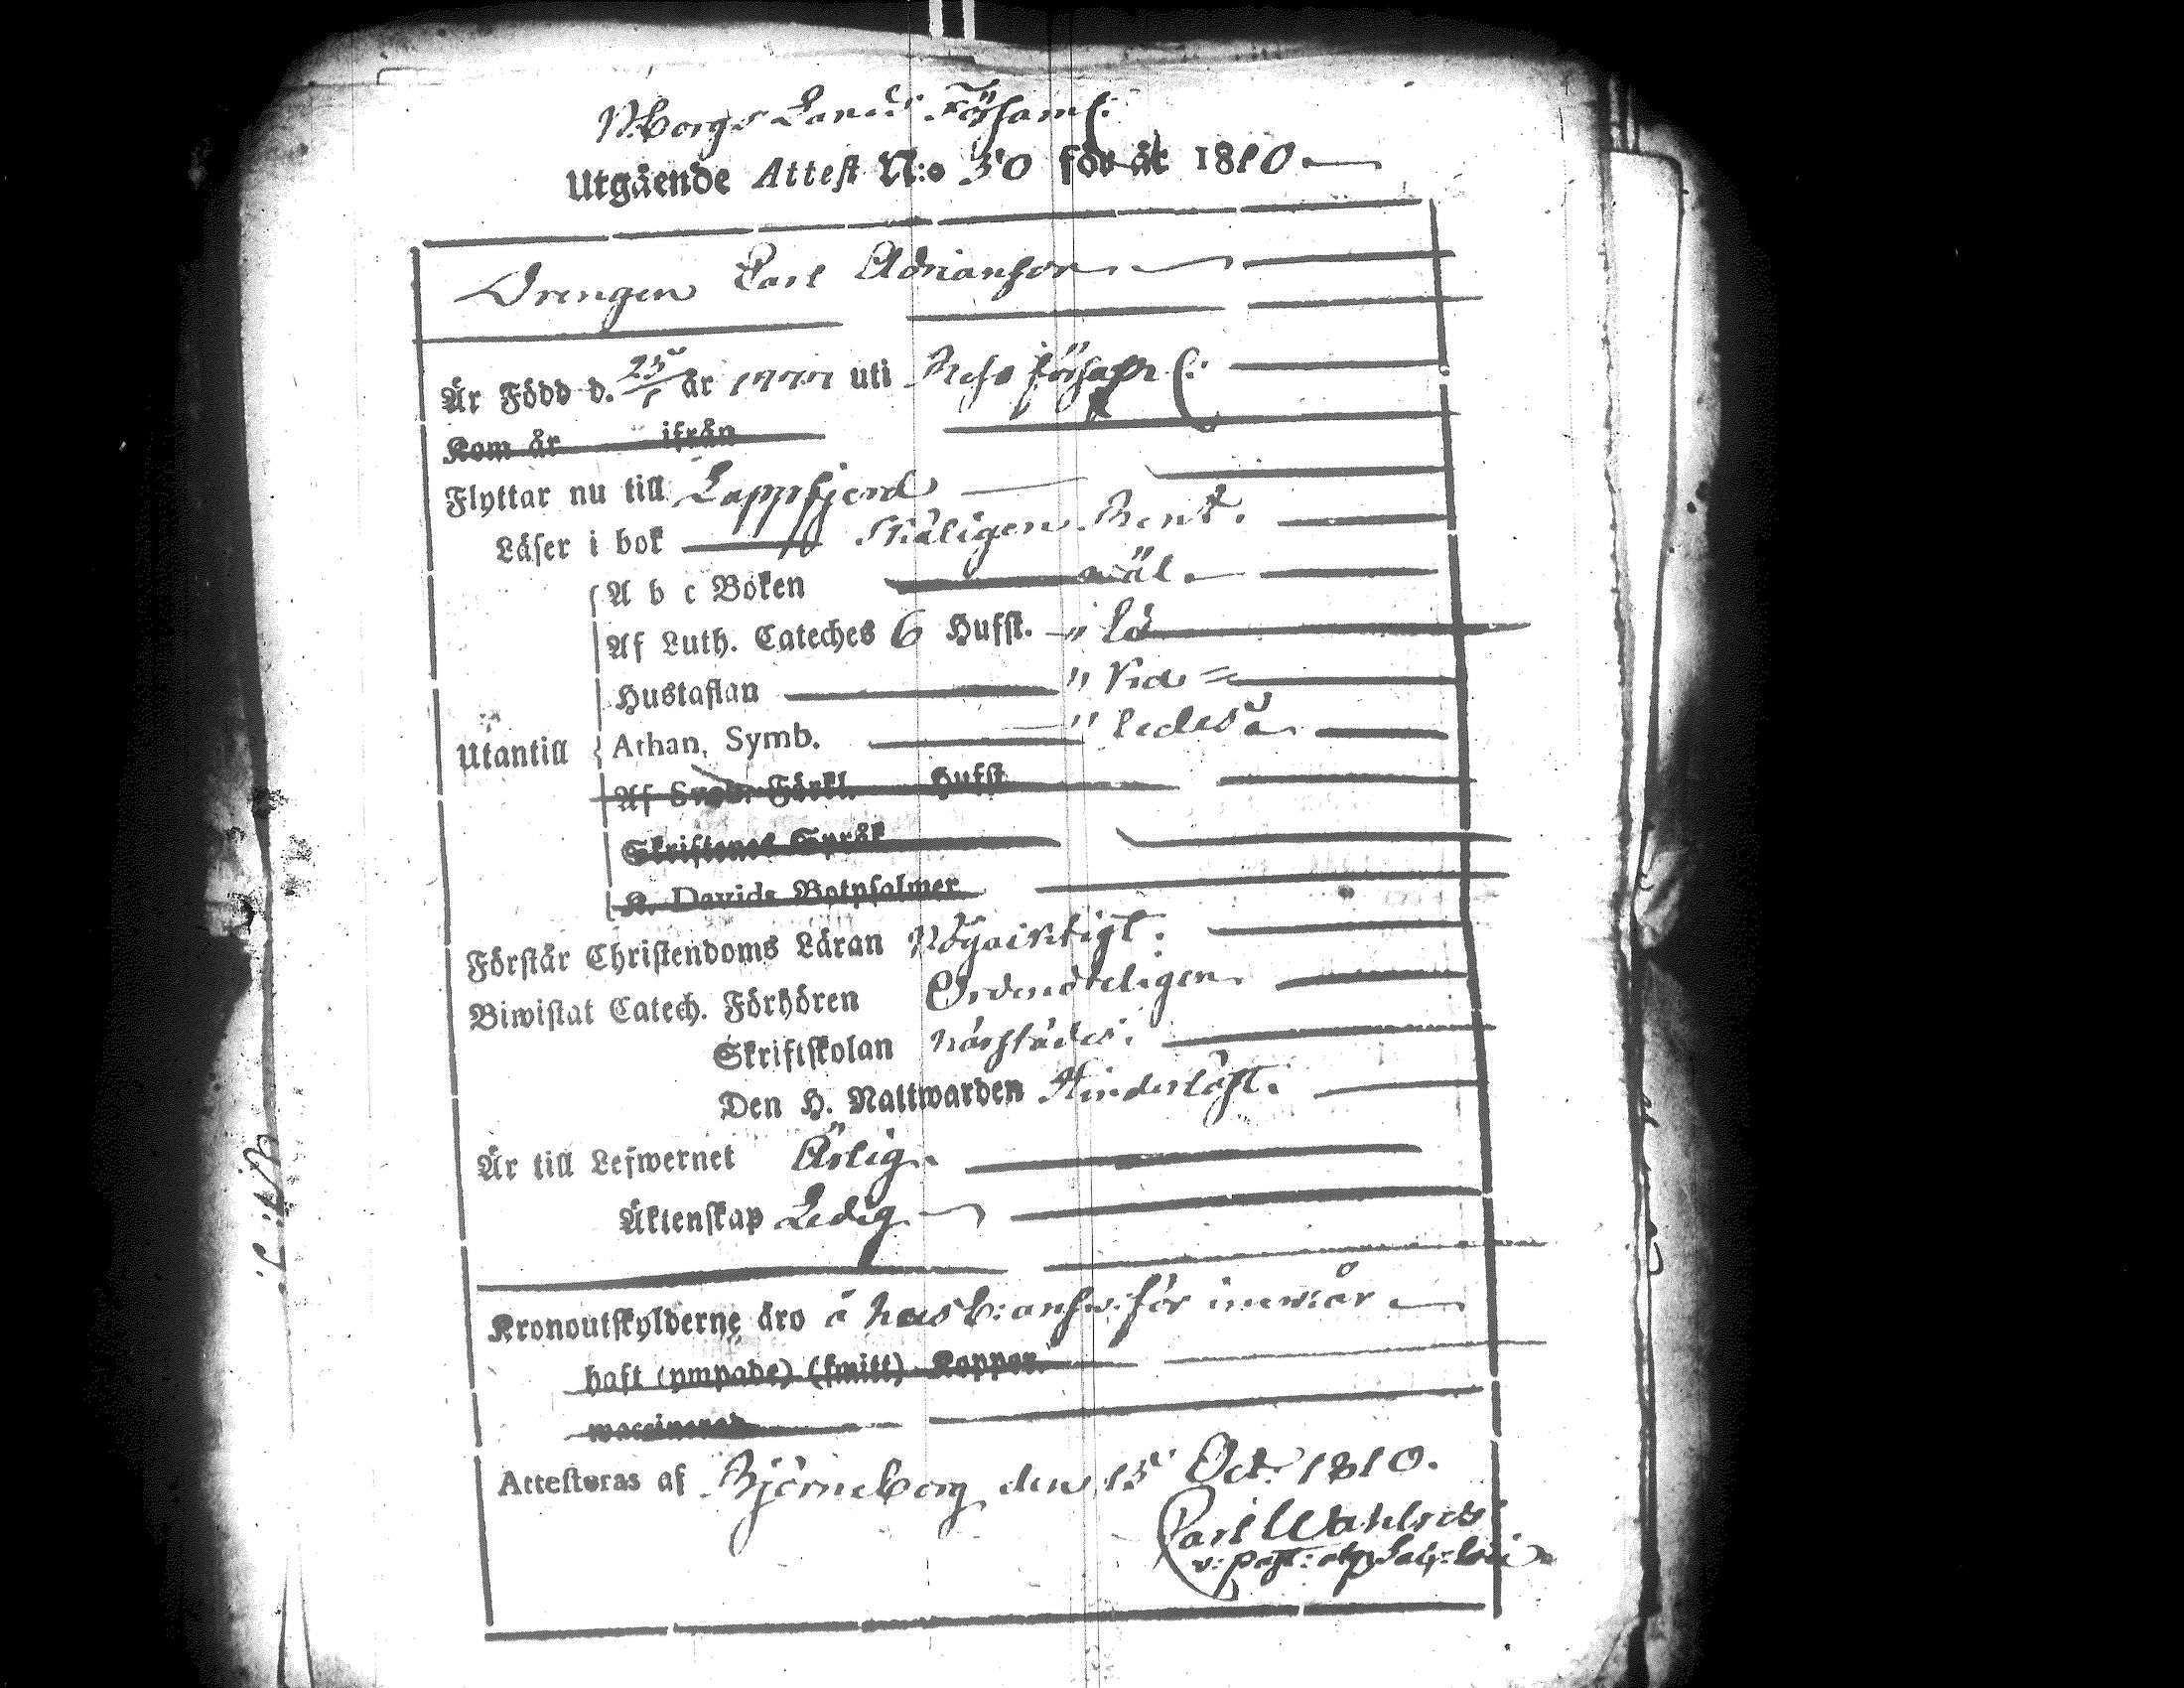 Borgs Lands Församl:
Utgående Attest N:o 30 för åt 1810.
Drengen Carl Adrianson
Är Född d. 25/1 år 1777 uti församl:
Kom år ifrån
Flyttar nu till Lappfjerd
Läser i bok skäligen Rent.
A b c Boken wäl.
Af Luth. Cateches 6 Hufst. "
Hustaflan "
Utantill Athan. Symb. " ledeså
Af Sveb. Förkl. Hufst
Skriftenes Språk
K. Davids Botpsalmer
Förstår Christendoms Läran Nögaicktigt.
Biwistat Catech. Förhören Ordenteligen
Skriftskolan
Den H. Nattwarden Hinderlöst.
Är till Lefwernet Ärlig
Äktenskap Ledig
Kronoutskylderne äro å husb: answ: för
haft (ympade) (smitt) Koppor.
waccinerad
Attesteras af Björneborg den 15 Oct. 1810.
Carl
v: past: